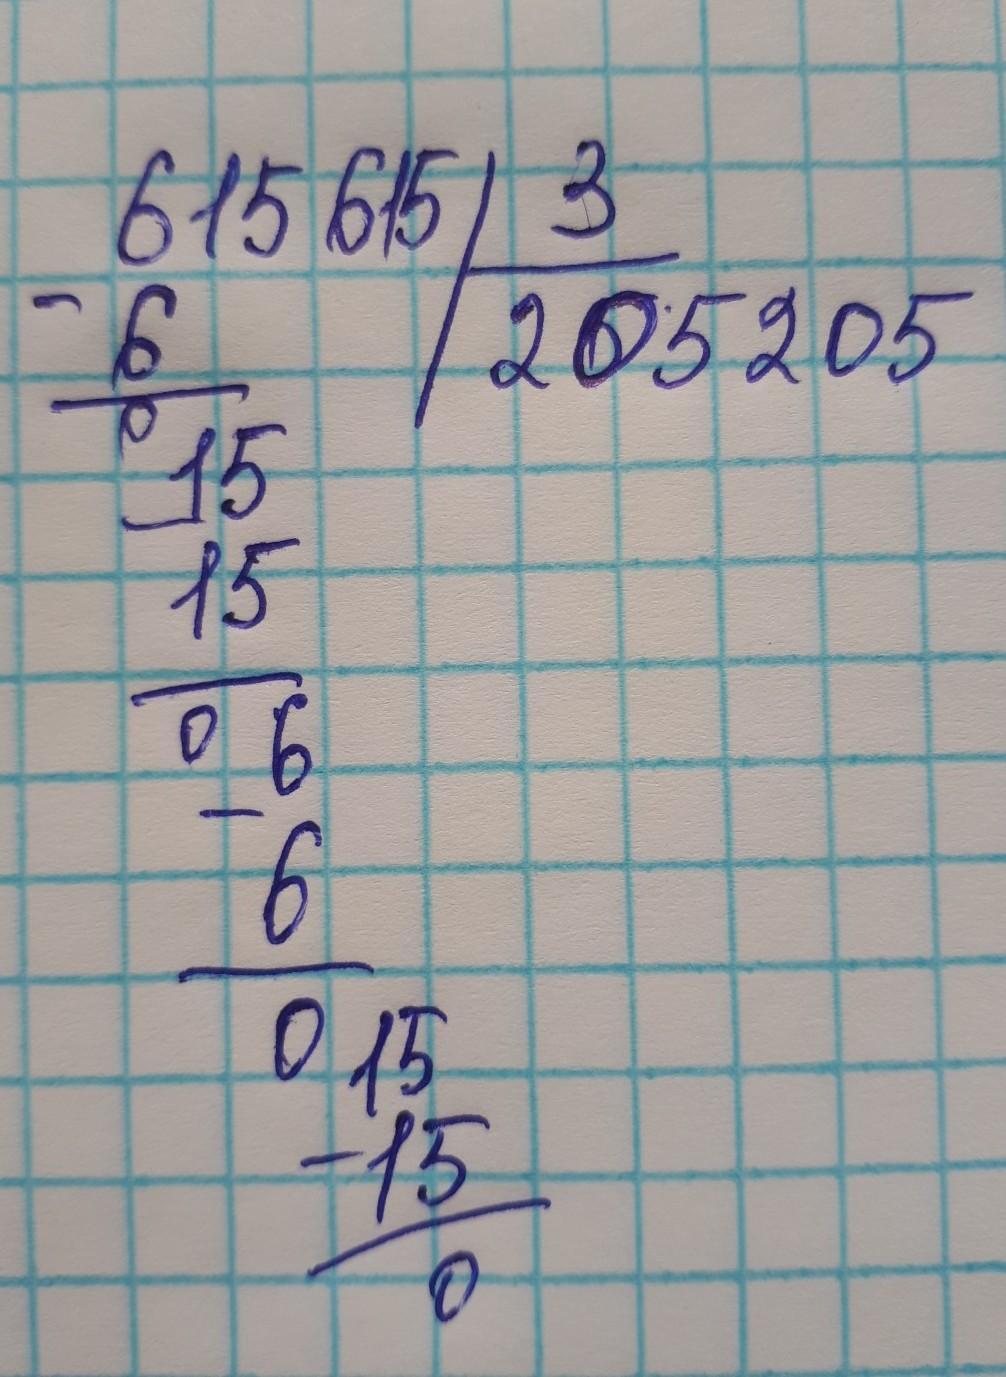 615615 3
- 6 205205
0
15
15
0 6
-
6
0 15
-15
0